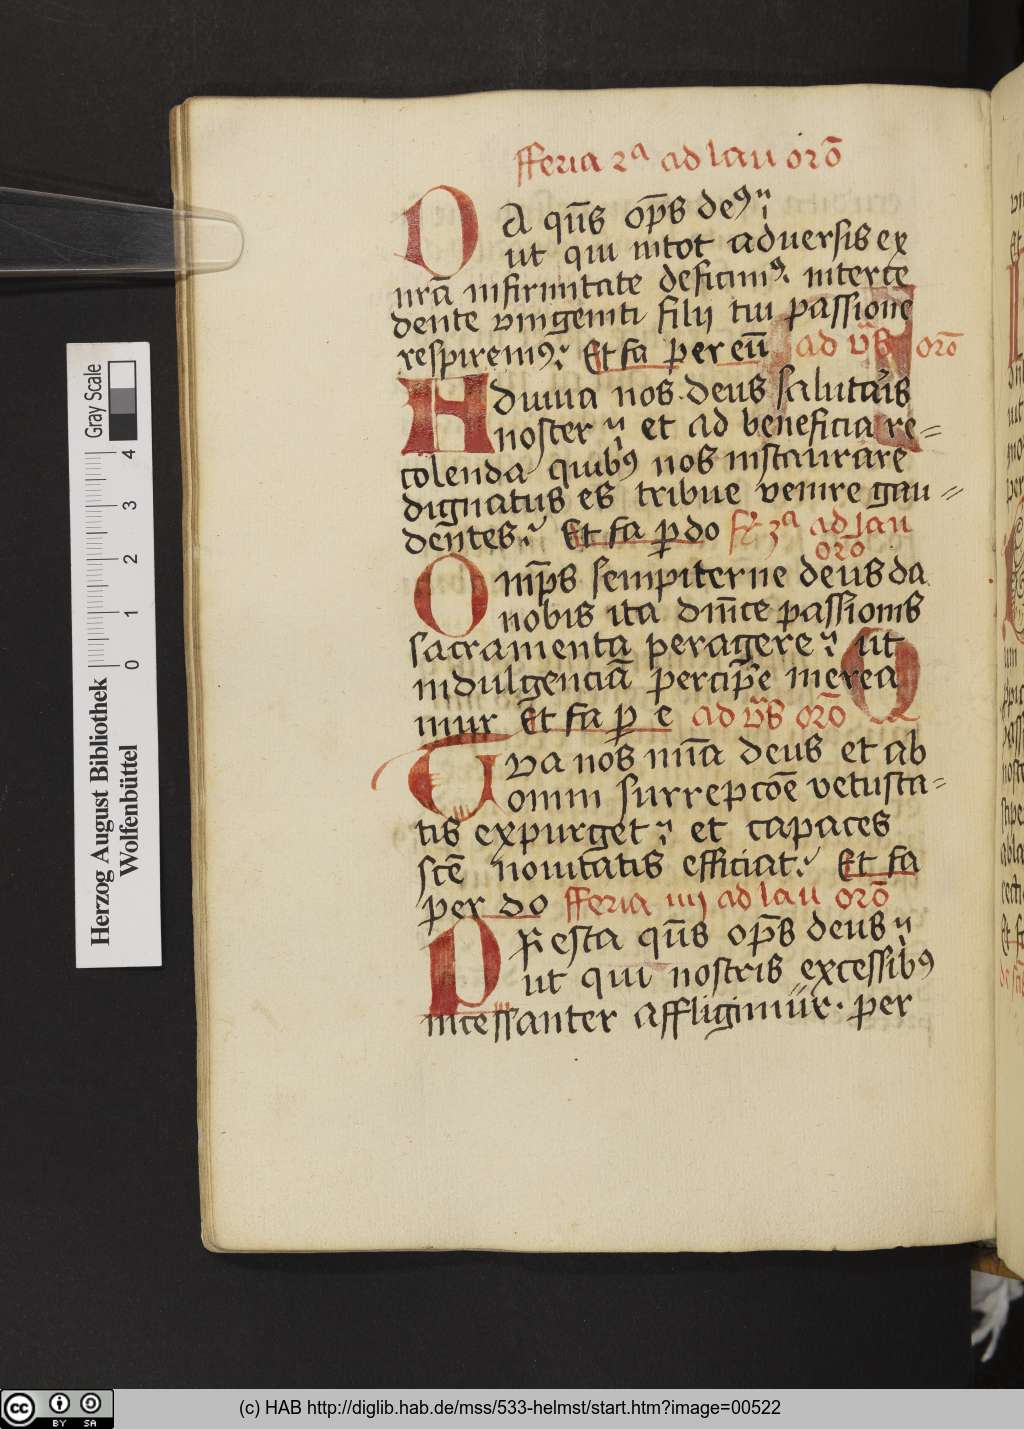 fferia 2ª ad lau orō
DA qūs op̄s deꝰ
ut qui in tot aduersis ex
nrā infirmitate deficimꝰ interce
dente vnigeniti filij tui passione
respiremꝰ Et fa per eū ad v̄s orō
Adiuua nos deus salutaris
noster et ad beneficia re=
colenda quibꝰ nos instaurare
dignatus es tribue venire gau=
dentes Et fa ꝑ do fr 3ª ad lau
orō
Omp̄s sempiterne deus da
nobis ita dn̄ice passionis
sacramenta peragere ut
indulgenciā percip̄e merea
mur Et fa ꝑ e ad v̄s orō
Tva nos mīa deus et ab
omni surrepcōe vetusta=
tis expurget et capaces
sctē nouitatis efficiat Et fa
per do fferia iiij ad lau orō
PResta qūs op̄s deus
ut qui nostris excessibꝰ
incessanter affligimur per
Herzog August Bibliothek
Wolfenbüttel
Gray Scale
0 1 2 3 4
cc BY SA
(c) HAB http://diglib.hab.de/mss/533-helmst/start.htm?image=00522